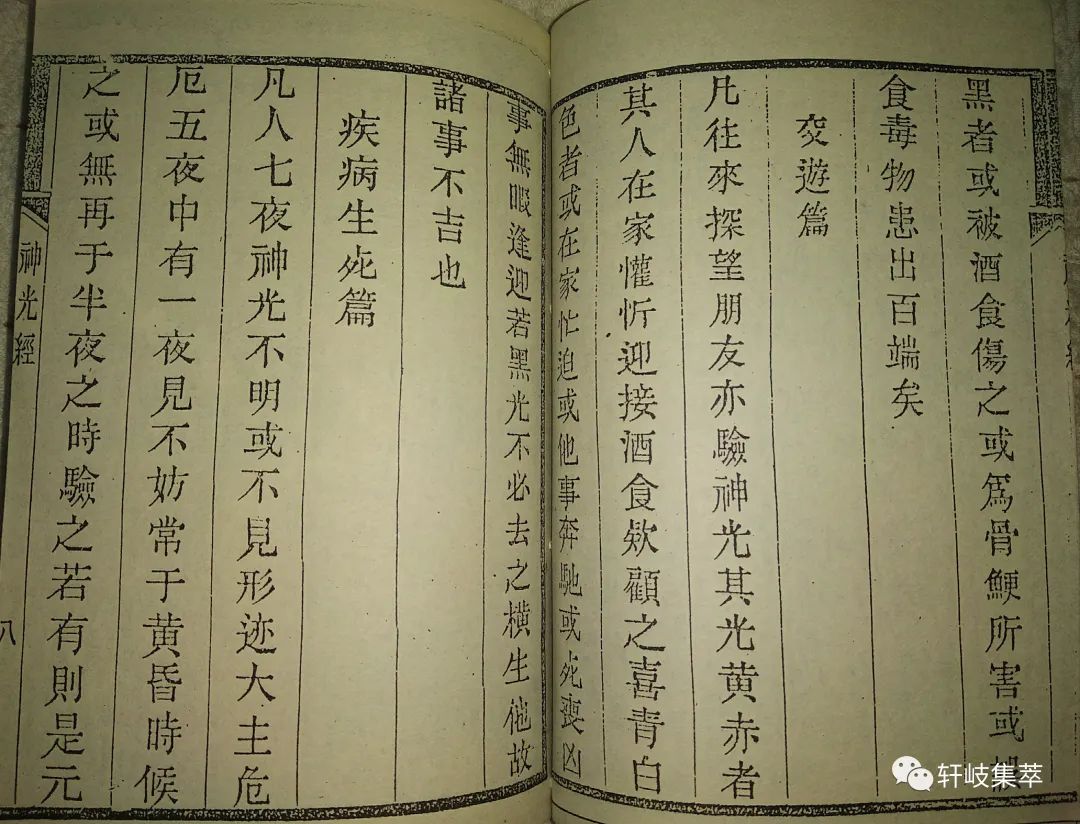 黑者或被酒食傷之或爲骨鯁所害或
食毒物患出百端矣
交遊篇
凡往來探望朋友亦驗神光其光黃赤者
其人在家懽忻迎接酒食欵顧之喜青白
色者或在家忙迫或他事奔馳或死喪凶
事無暇逢迎若黑光不必去之橫生他故
諸事不吉也
疾病生死篇
凡人七夜神光不明或不見形迹大主危
厄五夜中有一夜見不妨常于黃昏時候
之或無再于半夜之時驗之若有則是元
神光經
八
轩岐集萃